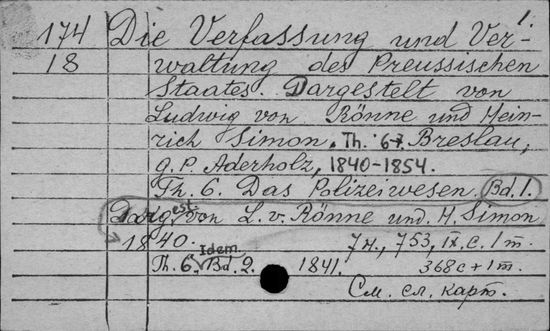 1.
174 Die Verfassung und Ver-
18 waltung des Preussischen
Staates. Dargestelt von
Ludwig von Rönne und Hein-
rich Simon. Th. 6-7. Breslau,
G. P. Aderholz, 1840-1854.
Th. 6. Das Polizeiwesen. Bd. 1.
Dargest. von L. v. Rönne und H. Simon
1840. 7н., 753, IX. с. 1 т.
Th. 6. Idem. Bd. 2. 1841. 368 с + 1 т.
См. сл. карт.